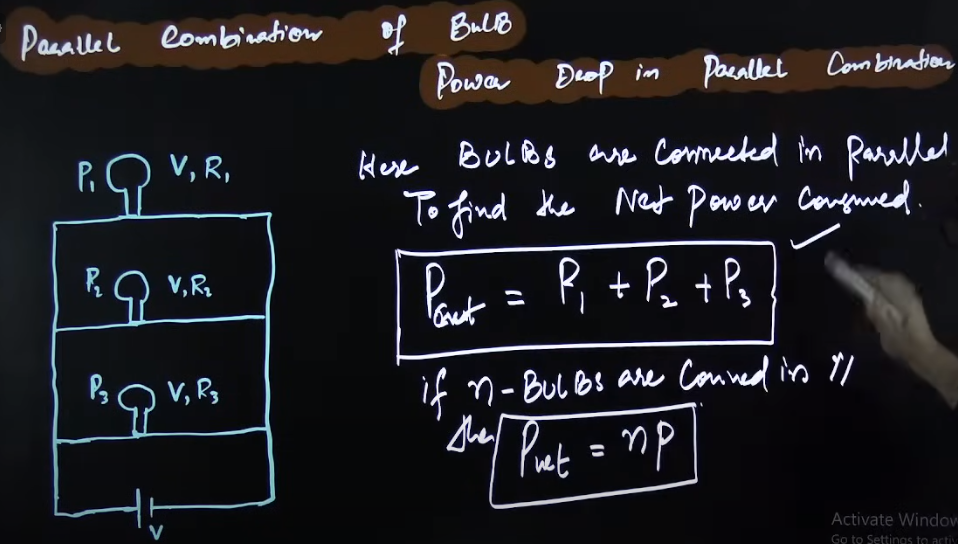 Parallel Combination of Bulb
Power Drop in Parallel Combination
P₁ V, R₁
Here BULBs are Connected in Parallel
To find the Net Power Consumed.
P₂ V, R₂
P = P₁ + P₂ + P₃
P₃ V, R₃
if n-BULBs are in //
then Pnet = nP
V
Activate Window
Go to Settings to acti